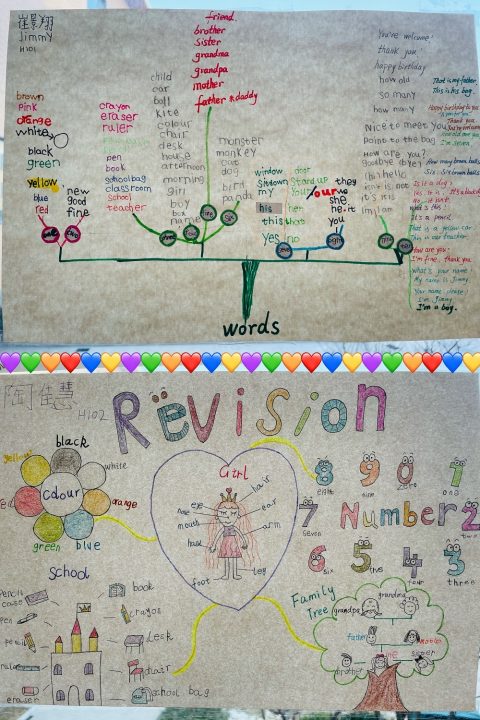 崔景翔
Jimmy
H101
friend.
brother
sister
grandma
grandpa
mother
father daddy
child
car
ball
kite
colour
chair
desk
house
afternoon
morning
girl
boy
box
name
brown
pink
orange
white
black
green
yellow
blue
red
new
good
fine
crayon
eraser
ruler
pen
book
schoolbag
classroom
school
teacher
monster
monkey
cat
dog
bird
panda
window
sit down
my
his
this
yes
door
stand up
your
her
that
no
our
they
we
she
he it
you
You're welcome!
thank you!
happy birthday
how old
so many
how many
Nice to meet you
Point to the bag
How are you?
goodbye bye!
hi hello
time is not
it's is
I'm I am
That is my father.
This is his bag.
Happy birthday to you
Thank you.
How old are you?
I'm seven.
How many brown balls
Six. Six brown balls.
Is it a dog?
No, it isn't.
What's this?
It's a pencil.
That is a yellow car.
This is our teacher.
How are you?
I'm fine, thank you.
What's your name?
My name is Jimmy.
Your name, please!
I'm Jimmy.
I'm a boy.
words
陶佳慧
H102
Revision
black
yellow
white
Colour
red
orange
green
blue
Girl
hair
eye
nose
ear
mouth
arm
hand
foot
leg
8 9 0 1
eight
nine
zero
one
7 Number 2
seven
two
6 5 4 3
six
five
four
three
School
pencil case
book
pen
crayon
pencil
desk
ruler
chair
eraser
school bag
Family Tree
grandma
grandpa
father
mother
me
sister
brother